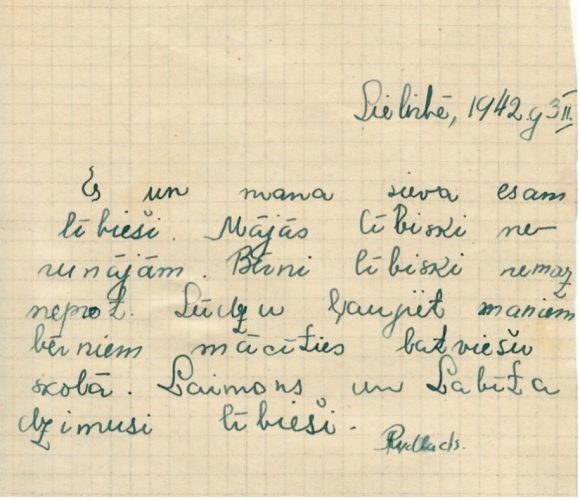 Lielirbē, 1942 g 3 II.
Es un mana sieva esam
lībieši. Mājās lībiski ne-
runājām. Bērni lībiski nemaz
neprot. Lūdzu ļaujiet maniem
bērniem mācīties latviešu
skolā. Laimons un
dzimusi lībieši.